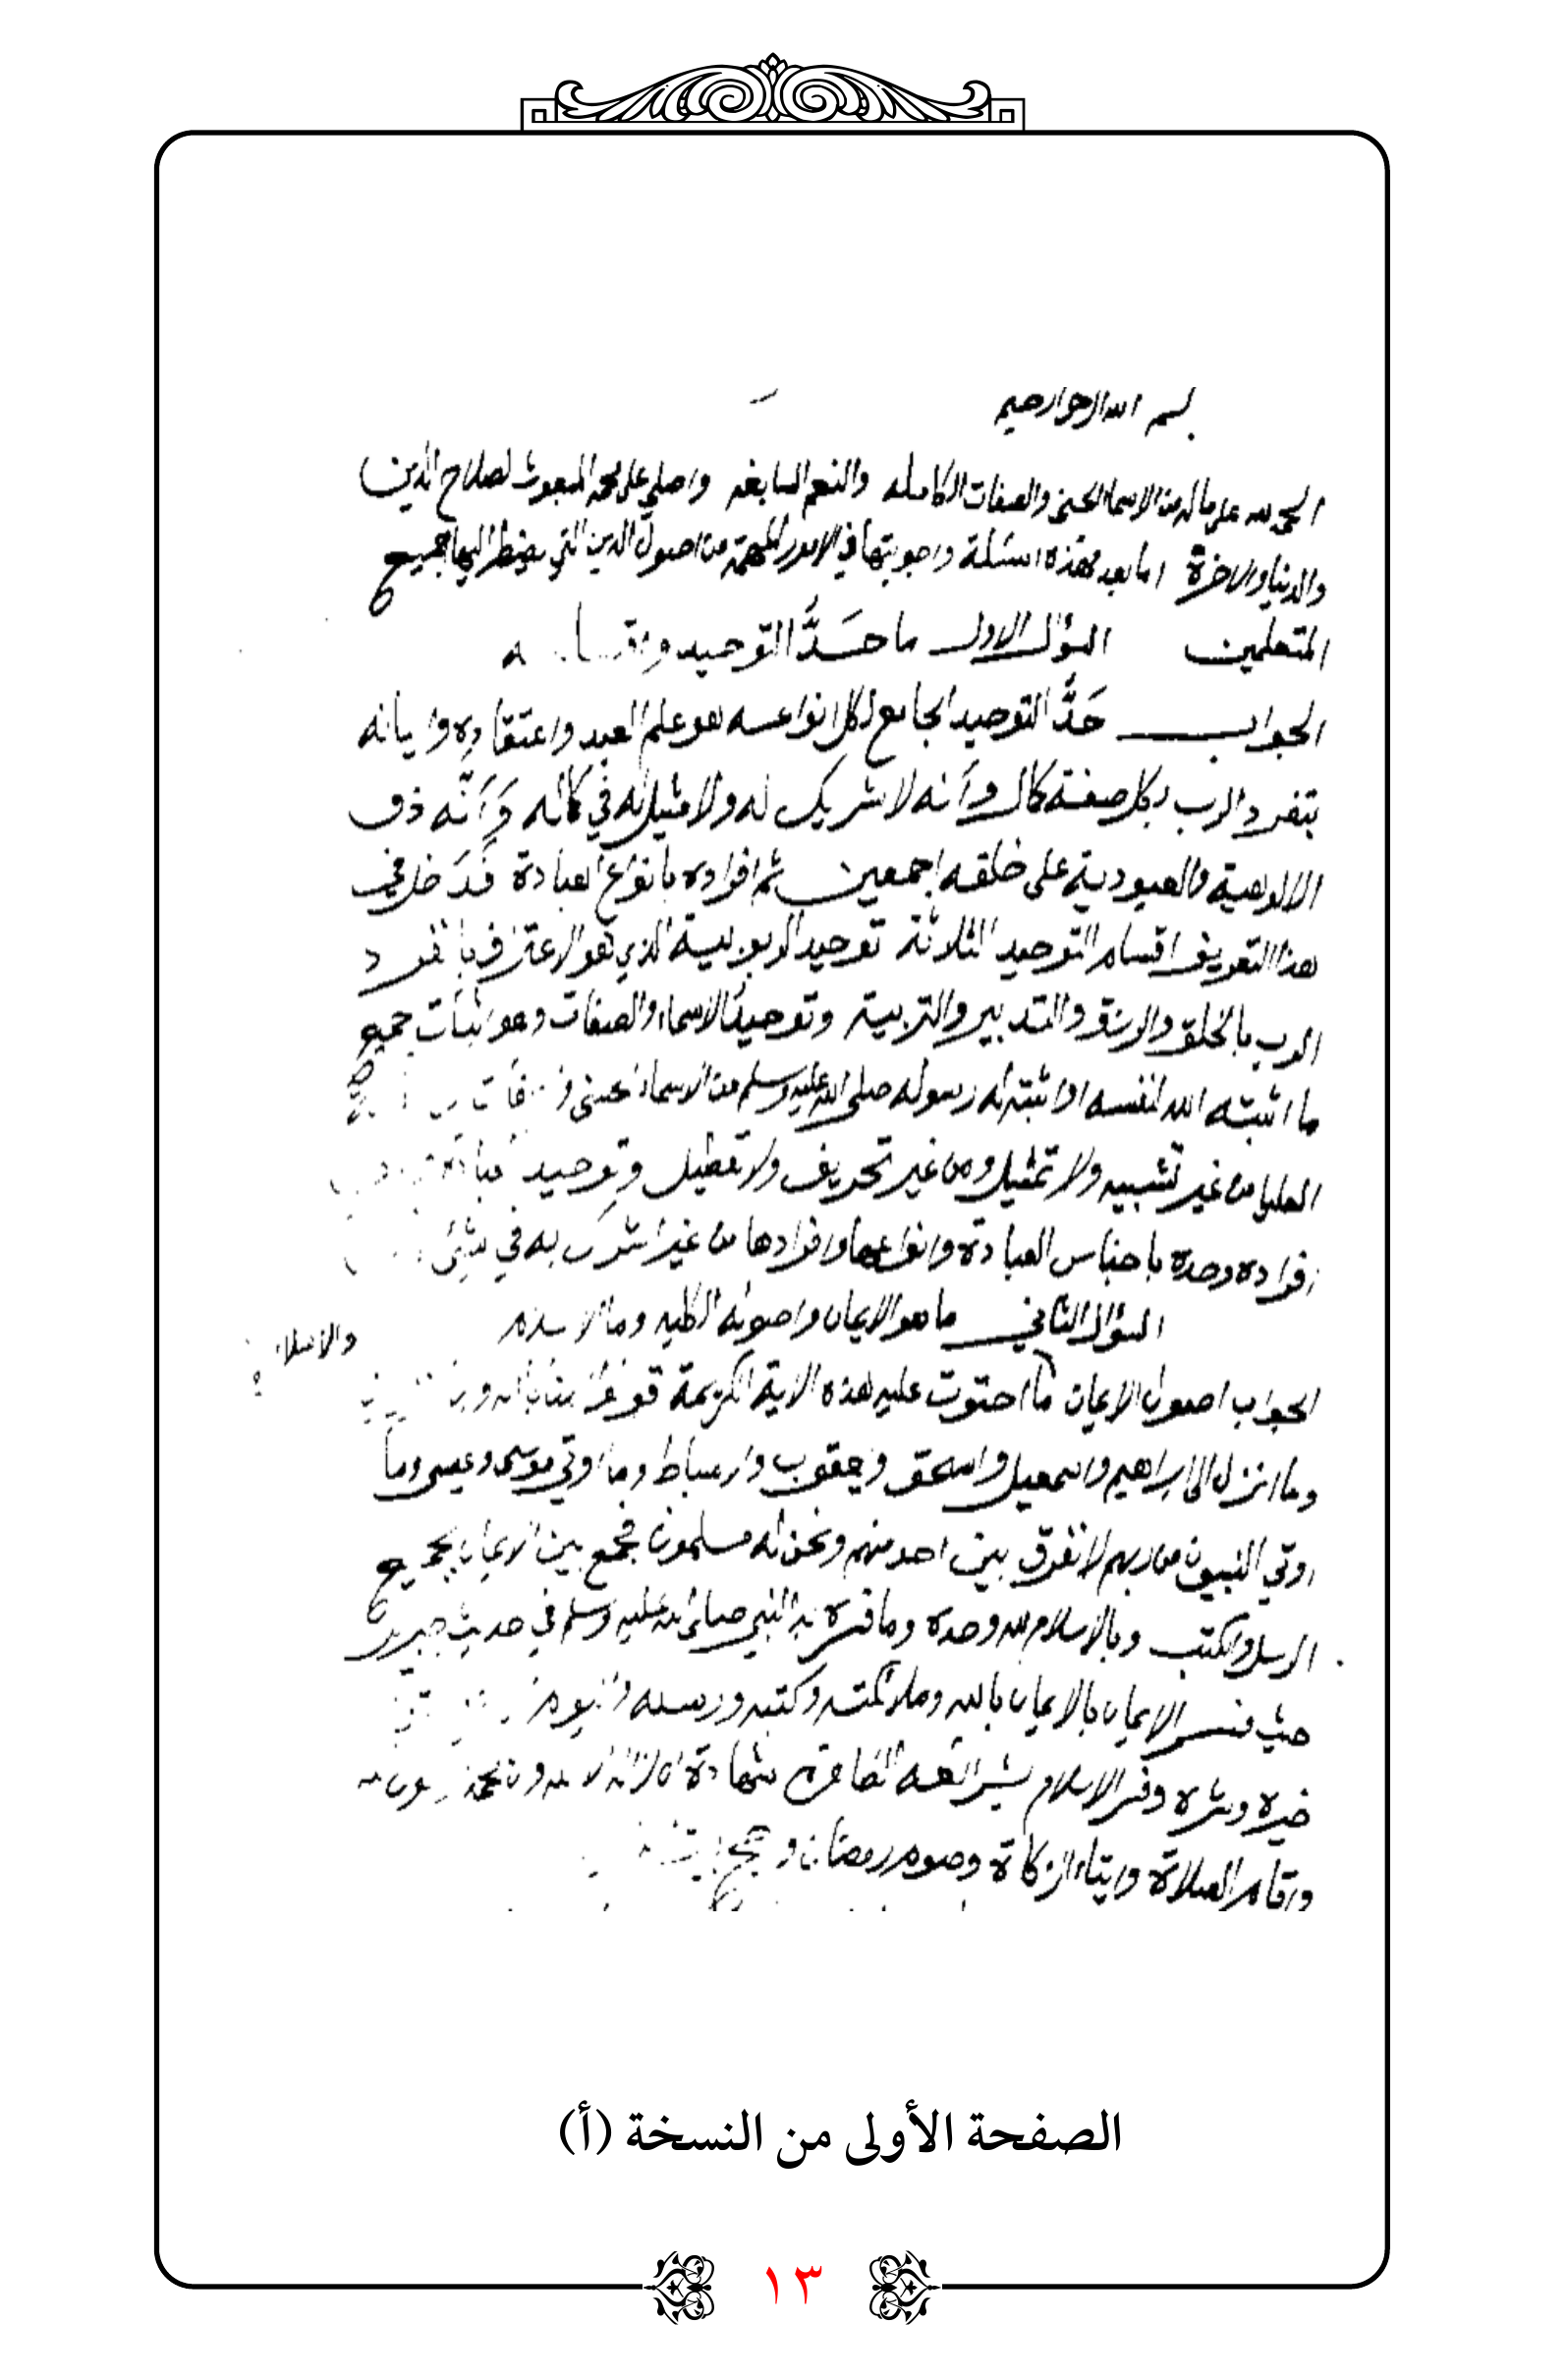 بسم الله الرحمن الرحيم
الحمد لله على ماله من الاسما الحسنى والصفات الكامله والنعم السابغه واصلي على محمد المبعوث لصلاح الدين
والدنيا والاخرة اما بعد فهذه اسئلة واجوبتها في الامور المهمة من اصول الدين التي يضطر اليها جميع
المتعلمين السؤال الاول ما حدَّ التوحيد
الجواب حَدَّ التوحيد الجامع لكل انواعه هو علم العبد واعتقاده وايمانه
بتفرد الرب بكل صفة كمال وأنه لا شريك له ولا مثيل له في كماله وَأَنّه ذو
الالوهية والعبودية على خلقه اجمعين ثم افراده بانواع العبادة فدَخل في
هذا التعريف اقسام التوحيد الثلاثة توحيد الربوبية الذي هو الاعتراف بانفراد
الرب بالخلق والرزق والتدبير والتربية وتوحيد الاسماء والصفات وهو اثبات جميع
ما اثبته الله لنفسه او اثبته له رسوله صلى الله عليه وسلم من الاسماء الحسنى
العليا من غير تشبيه ولا تمثيل ومن غير تحريف ولا تعطيل وتوحيد
افراده وحده باجناس العبادة وانواعها وافرادها من غير اشراك به في شيئ
السؤال الثاني ما هو الايمان واصوله الكليه وما الاسلام
الجواب اصول الايمان ما احتوت عليه هذه الاية الكريمة
وما انزل الى ابراهيم واسمعيل واسحق ويعقوب والاسباط وما اوتي موسى وعيسى وما
اوتي النبيون من ربهم لا نفرق بين احد منهم ونحن له مسلمون فجمع بين الايمان بجميع
الرسل والكتب وبالاسلام لله وحده وما فسره به النبي صلى الله عليه وسلم في حديث جبريل
حيث فسر الايمان بالايمان بالله وملائكته وكتبه ورسله
خيره وشره وفسر الاسلام بشرائعه الظاهرة شهادة ان لا اله الا الله وان محمد رسول الله
واقام الصلاة وايتاء الزكاة وصوم رمضان وحج
الصفحة الأولى من النسخة (أ)
١٣